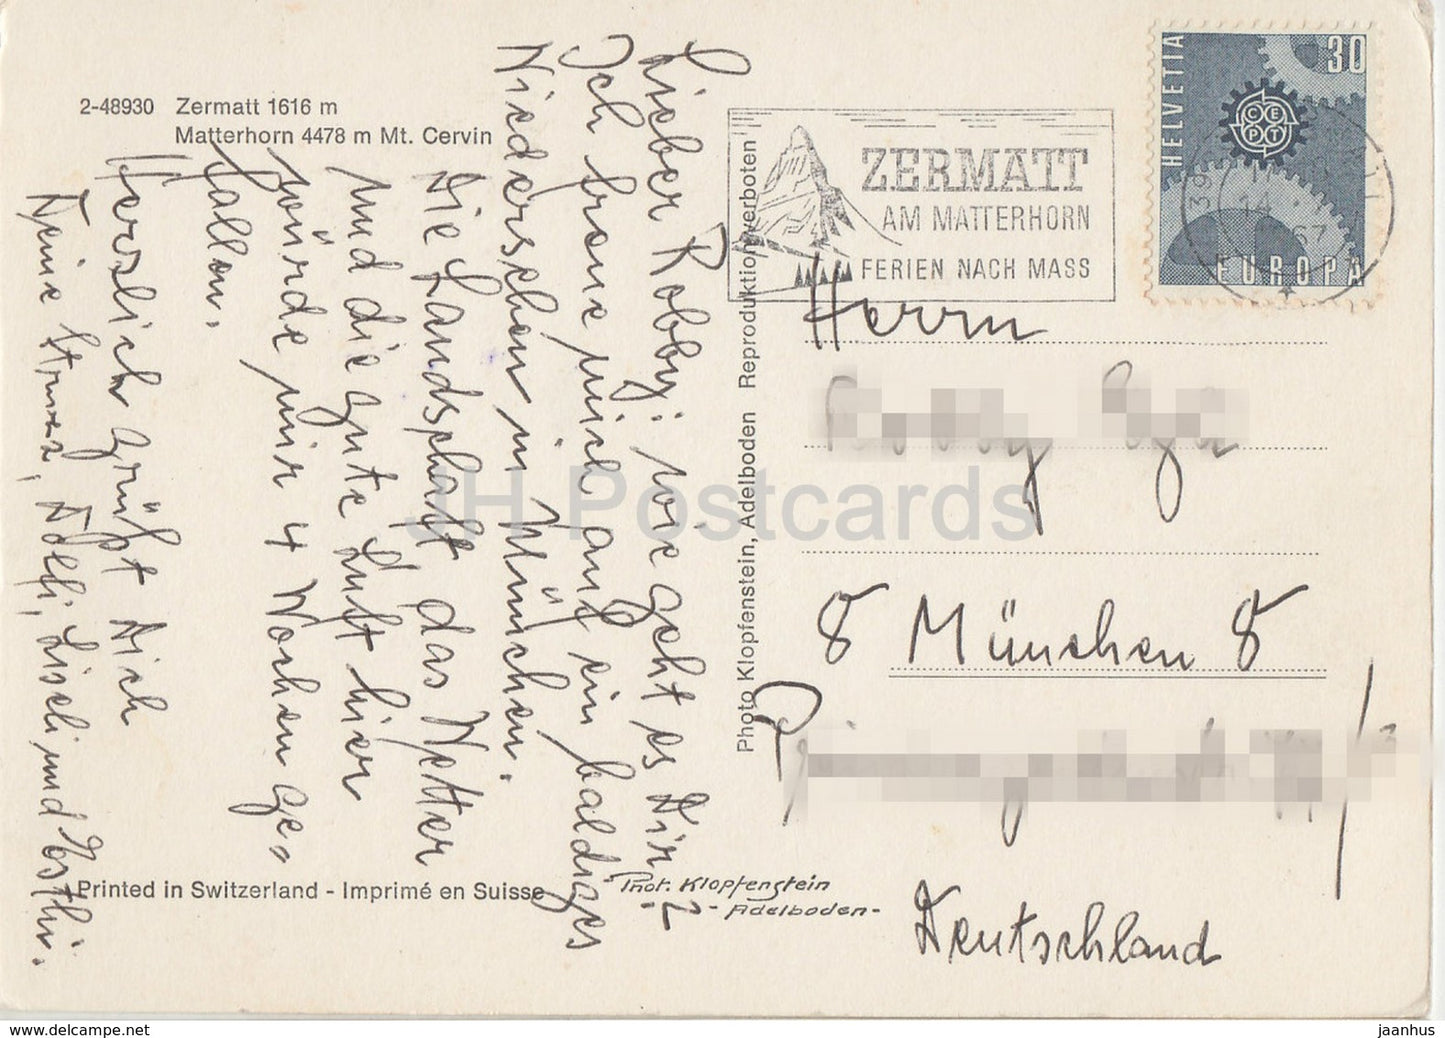 2-48930 Zermatt 1616 m
Matterhorn 4478 m Mt. Cervin
Lieber Robby! wie geht es Dir?
Ich freue mich auf ein baldiges
Niedersehen in München.
Die Landschaft, das Wetter
und die gute Luft hier
würde mir 4 Wochen ge=
fallen.
Herzlich grüßt Dich
Deine Adolfi, Liesli und Esthi.
Printed in Switzerland - Imprimé en Suisse
Phot. Klopfenstein
- Adelboden -
Photo Klopfenstein, Adelboden Reproduktion verboten
ZERMATT
AM MATTERHORN
FERIEN NACH MASS
HELVETIA
30
CEPT
EUROPA
Herrn
8 München 8
Deutschland
JH Postcards
www.delcampe.net
jaanhus